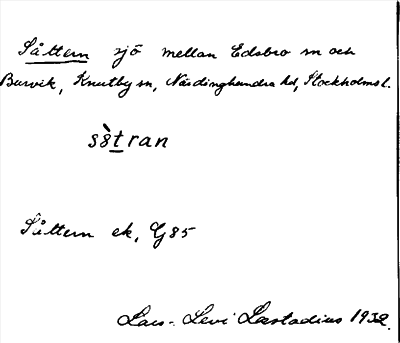 Såttern sjö mellan Edsbro sn och
Burvik, Knutby sn, Närdinghundra hd, Stockholms l.
sȯ̀tran
Såttern ek, G 85
Lars-Levi Læstadius 1932.